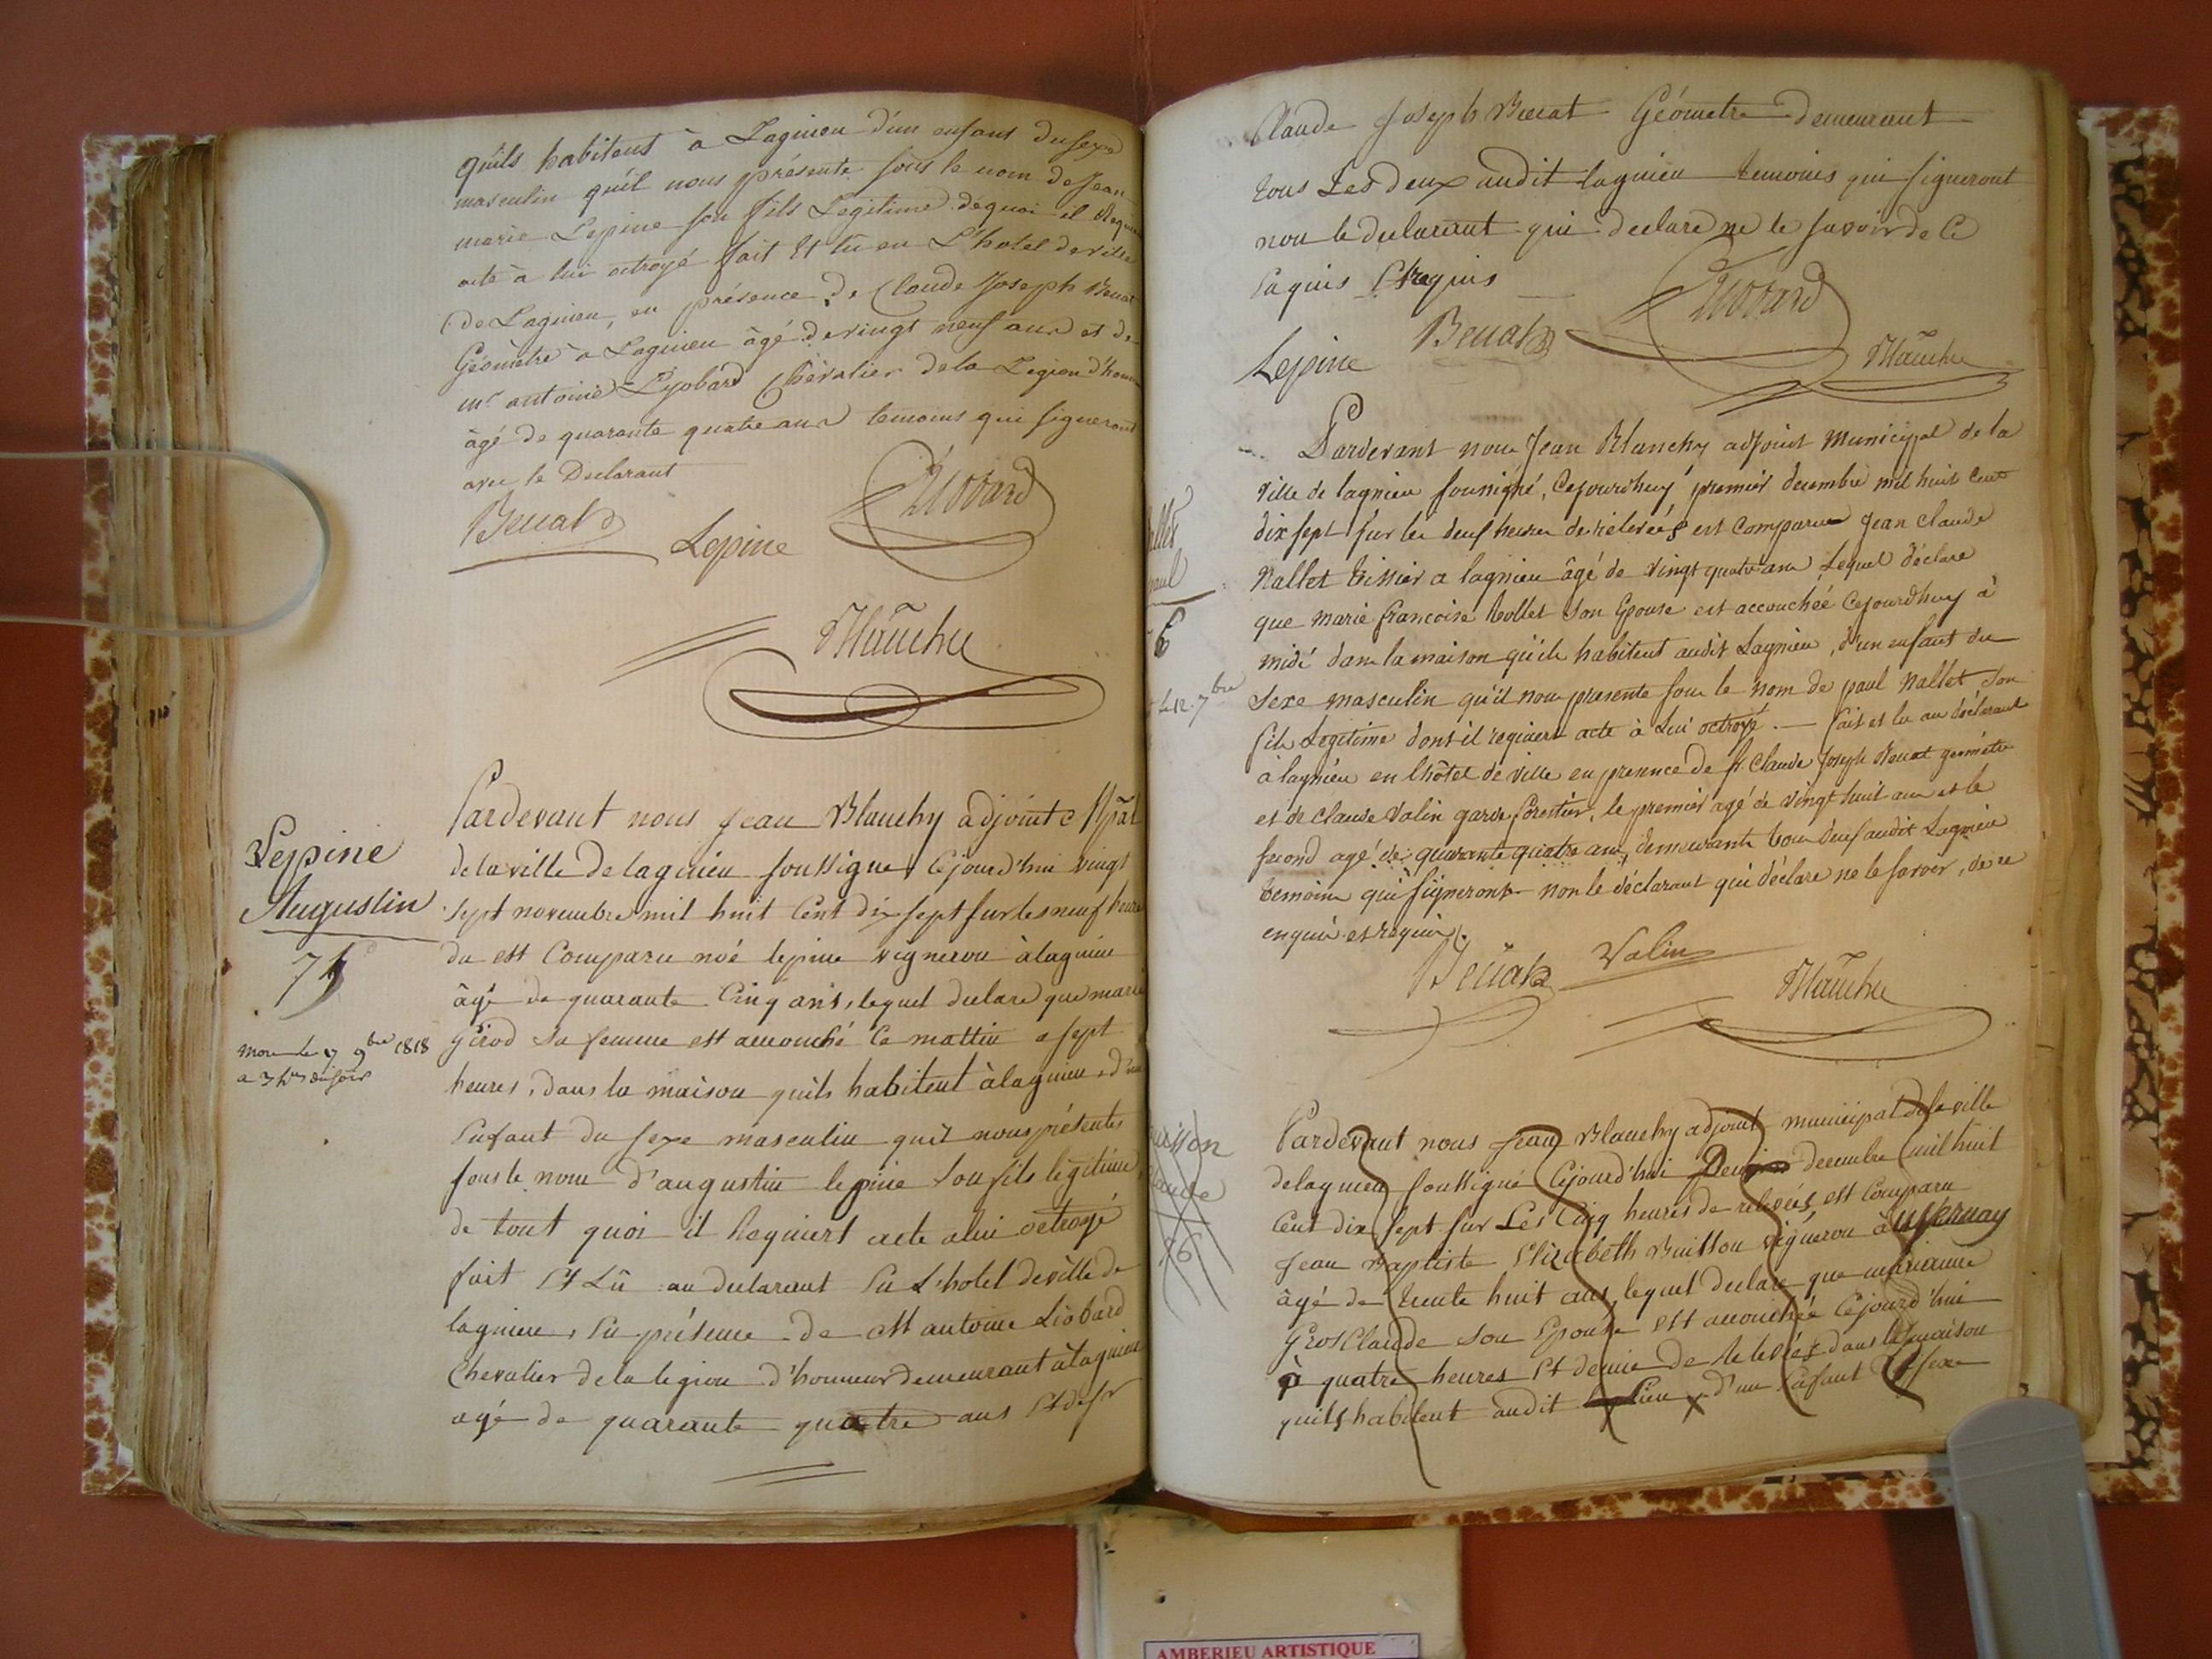 qu'ils habitent à Lagnieu d'un enfant du sexe
masculin qu'il nous présente sous le nom de Jean
marie Lepine son fils Legitime dequoi il Requiert
acte à lui octroyé fait Et lû en L'hotel de ville
de Lagnieu, en présence de Claude Joseph Beuat
Géomètre a Lagnieu âgé de vingt neuf ans et de
mr antoine Lyobard Chevalier de la Legion d'honneur
âgé de quarante quatre ans temoins qui signeront
avec le Declarant
Beuat
Lepine
Liobard
Blanchy
Lepine
Augustin
75
mort le 17 9bre 1818
a 3 hres du soir
Pardevant nous Jean Blanchy adjoint Mpal
de la ville de lagnieu soussigné, Cejourd'hui vingt
sept novembre mil huit Cent dix sept sur les neuf heures
du est Comparu noé lepine vigneron à lagnieu
âgé de quarante Cinq ans, lequel declare que marie
Girod sa femme est accouché Ce mattin a sept
heures, dans la maison qu'ils habitent à lagnieu d'un
Enfant du sexe masculin qu'il nous présente
sous le nom d'augustin lepine son fils legitime,
de tout quoi il Requiert acte a lui octroyé
fait Et Lû au declarant En L'hotel de ville de
lagnieu, En présence de Mr antoine Liobard
Chevalier de la legion d'honneur demeurant à lagnieu
agé de quarante quatre ans Et de sr
Claude Joseph Beuat Géometre demeurant
tous Les deux audit lagnieu temoins qui signeront
non le declarant qui declare ne le savoir de Ce
Enquis Et requis
Lepine
Beuat
Liobard
Blanchy
6
le 12. 7bre
Pardevant nous Jean Blanchy adjoint Municipal de la
ville de lagnieu soussigné, Cejourdhuy premier decembre mil huit cent
dix sept sur les deux heures de relevées est Comparu Jean Claude
Nallet tissier a lagnieu âgé de vingt quatre ans, Lequel déclare
que marie francoise tollet son Epouse est accouchée Cejourdhuy à
midi dans la maison qu'ils habitent audit Lagnieu, d'un enfant du
Sexe masculin qu'il nous presente sous le nom de paul Nallet son
fils Legitime dont il requiert acte à Lui octroyé. — fait et lu au déclarant
à lagnieu en l'hôtel de ville en presence de sr Claude Joseph Beuat géomètre
et de Claude Valin garde forestier, le premier agé de vingt huit ans et le
second agé de quarante quatre ans, demeurants tous deux audit Lagnieu
temoins qui signeront non le déclarant qui déclare ne le savoir, de ce
enquis et requis.
Beuat
Valin
Blanchy
Buisson
Claude
76
Pardevant nous Jean Blanchy adjoint municipal de la ville
de lagnieu soussigné Cejourd'hui decembre mil huit
Cent dix sept sur Les Cinq heures de relevées est Comparu
Jean Baptiste Elizabeth Buisson vigneron à
âgé de trente huit ans, lequel declare que marianne
Grosclaude son Epouse est accouchée Cejourd'hui
à quatre heures Et demie de Relevées dans la maison
qu'ils habitent audit Lieu x d'un Enfant du sexe
AMBERIEU ARTISTIQUE